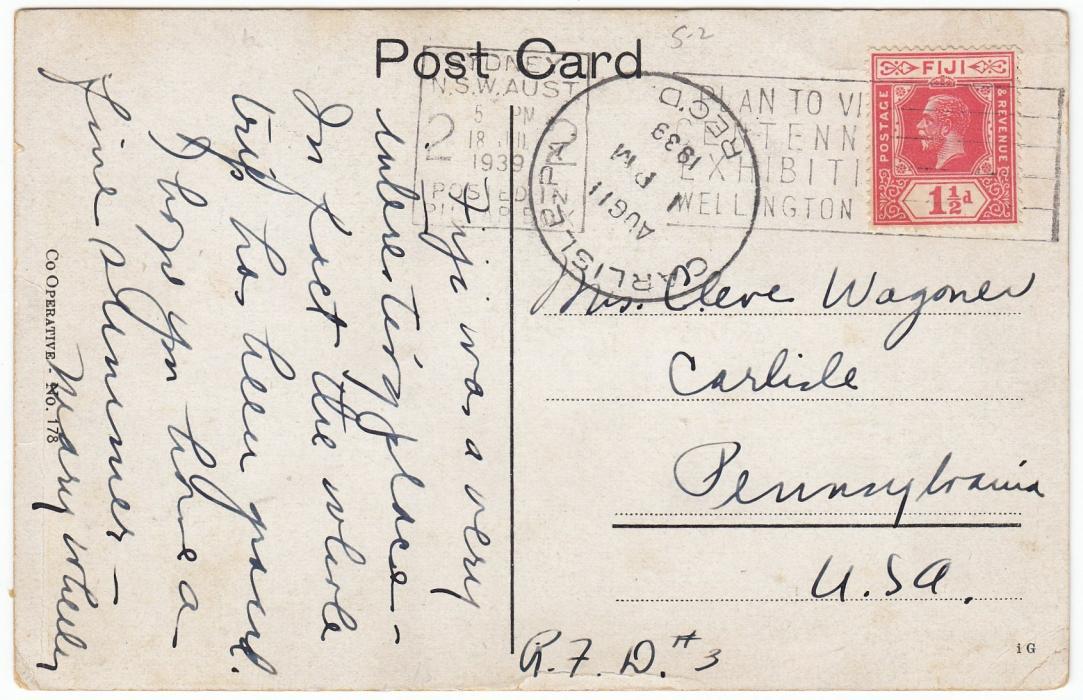 5-2
Post Card
SYDNEY
N.S.W. AUST
5 PM
18 JUL
1939
2
POSTED
PLAN TO VI
CENTENN
EXHIBITI
WELLINGTON
CARLISLE PA
REC'D.
AUG 11
1 PM
1939
FIJI
POSTAGE
& REVENUE
1½d
Fiji was a very
interesting place -
In fact the whole
trip has been grand.
I hope you have a
fine summer -
Mary Wheeler
Mrs. Cleve Wagoner
Carlisle
Pennsylvania
U.S.A.
R.F.D. #3
CO OPERATIVE - No. 178
i G